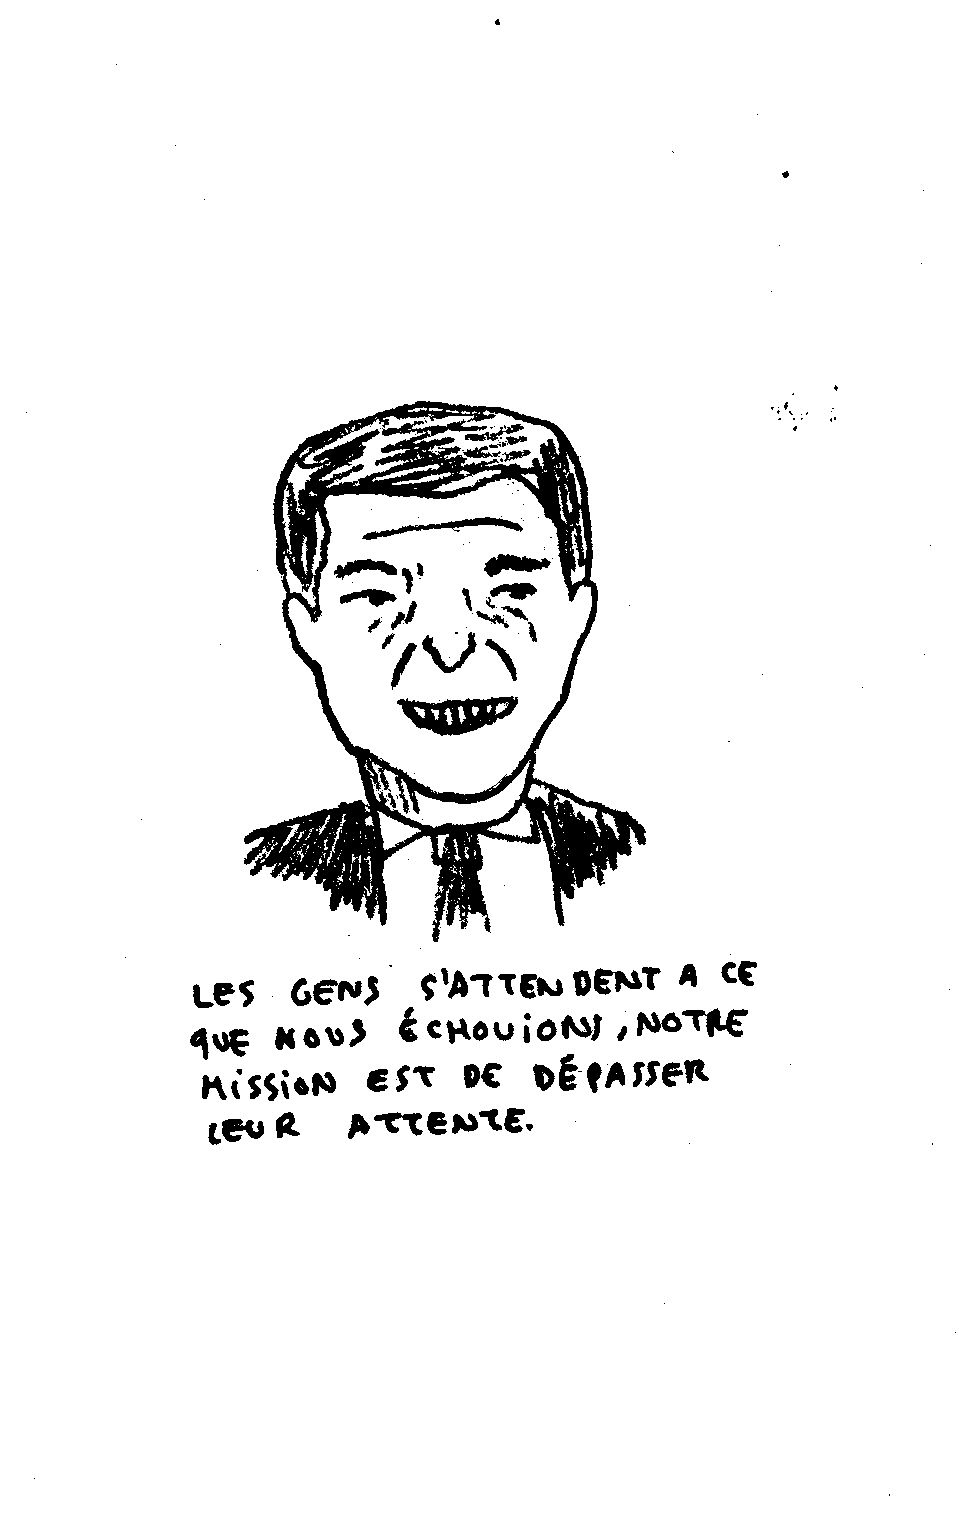 LES GENS S'ATTENDENT A CE
QUE NOUS ÉCHOUIONS, NOTRE
MISSION EST DE DÉPASSER
LEUR ATTENTE.